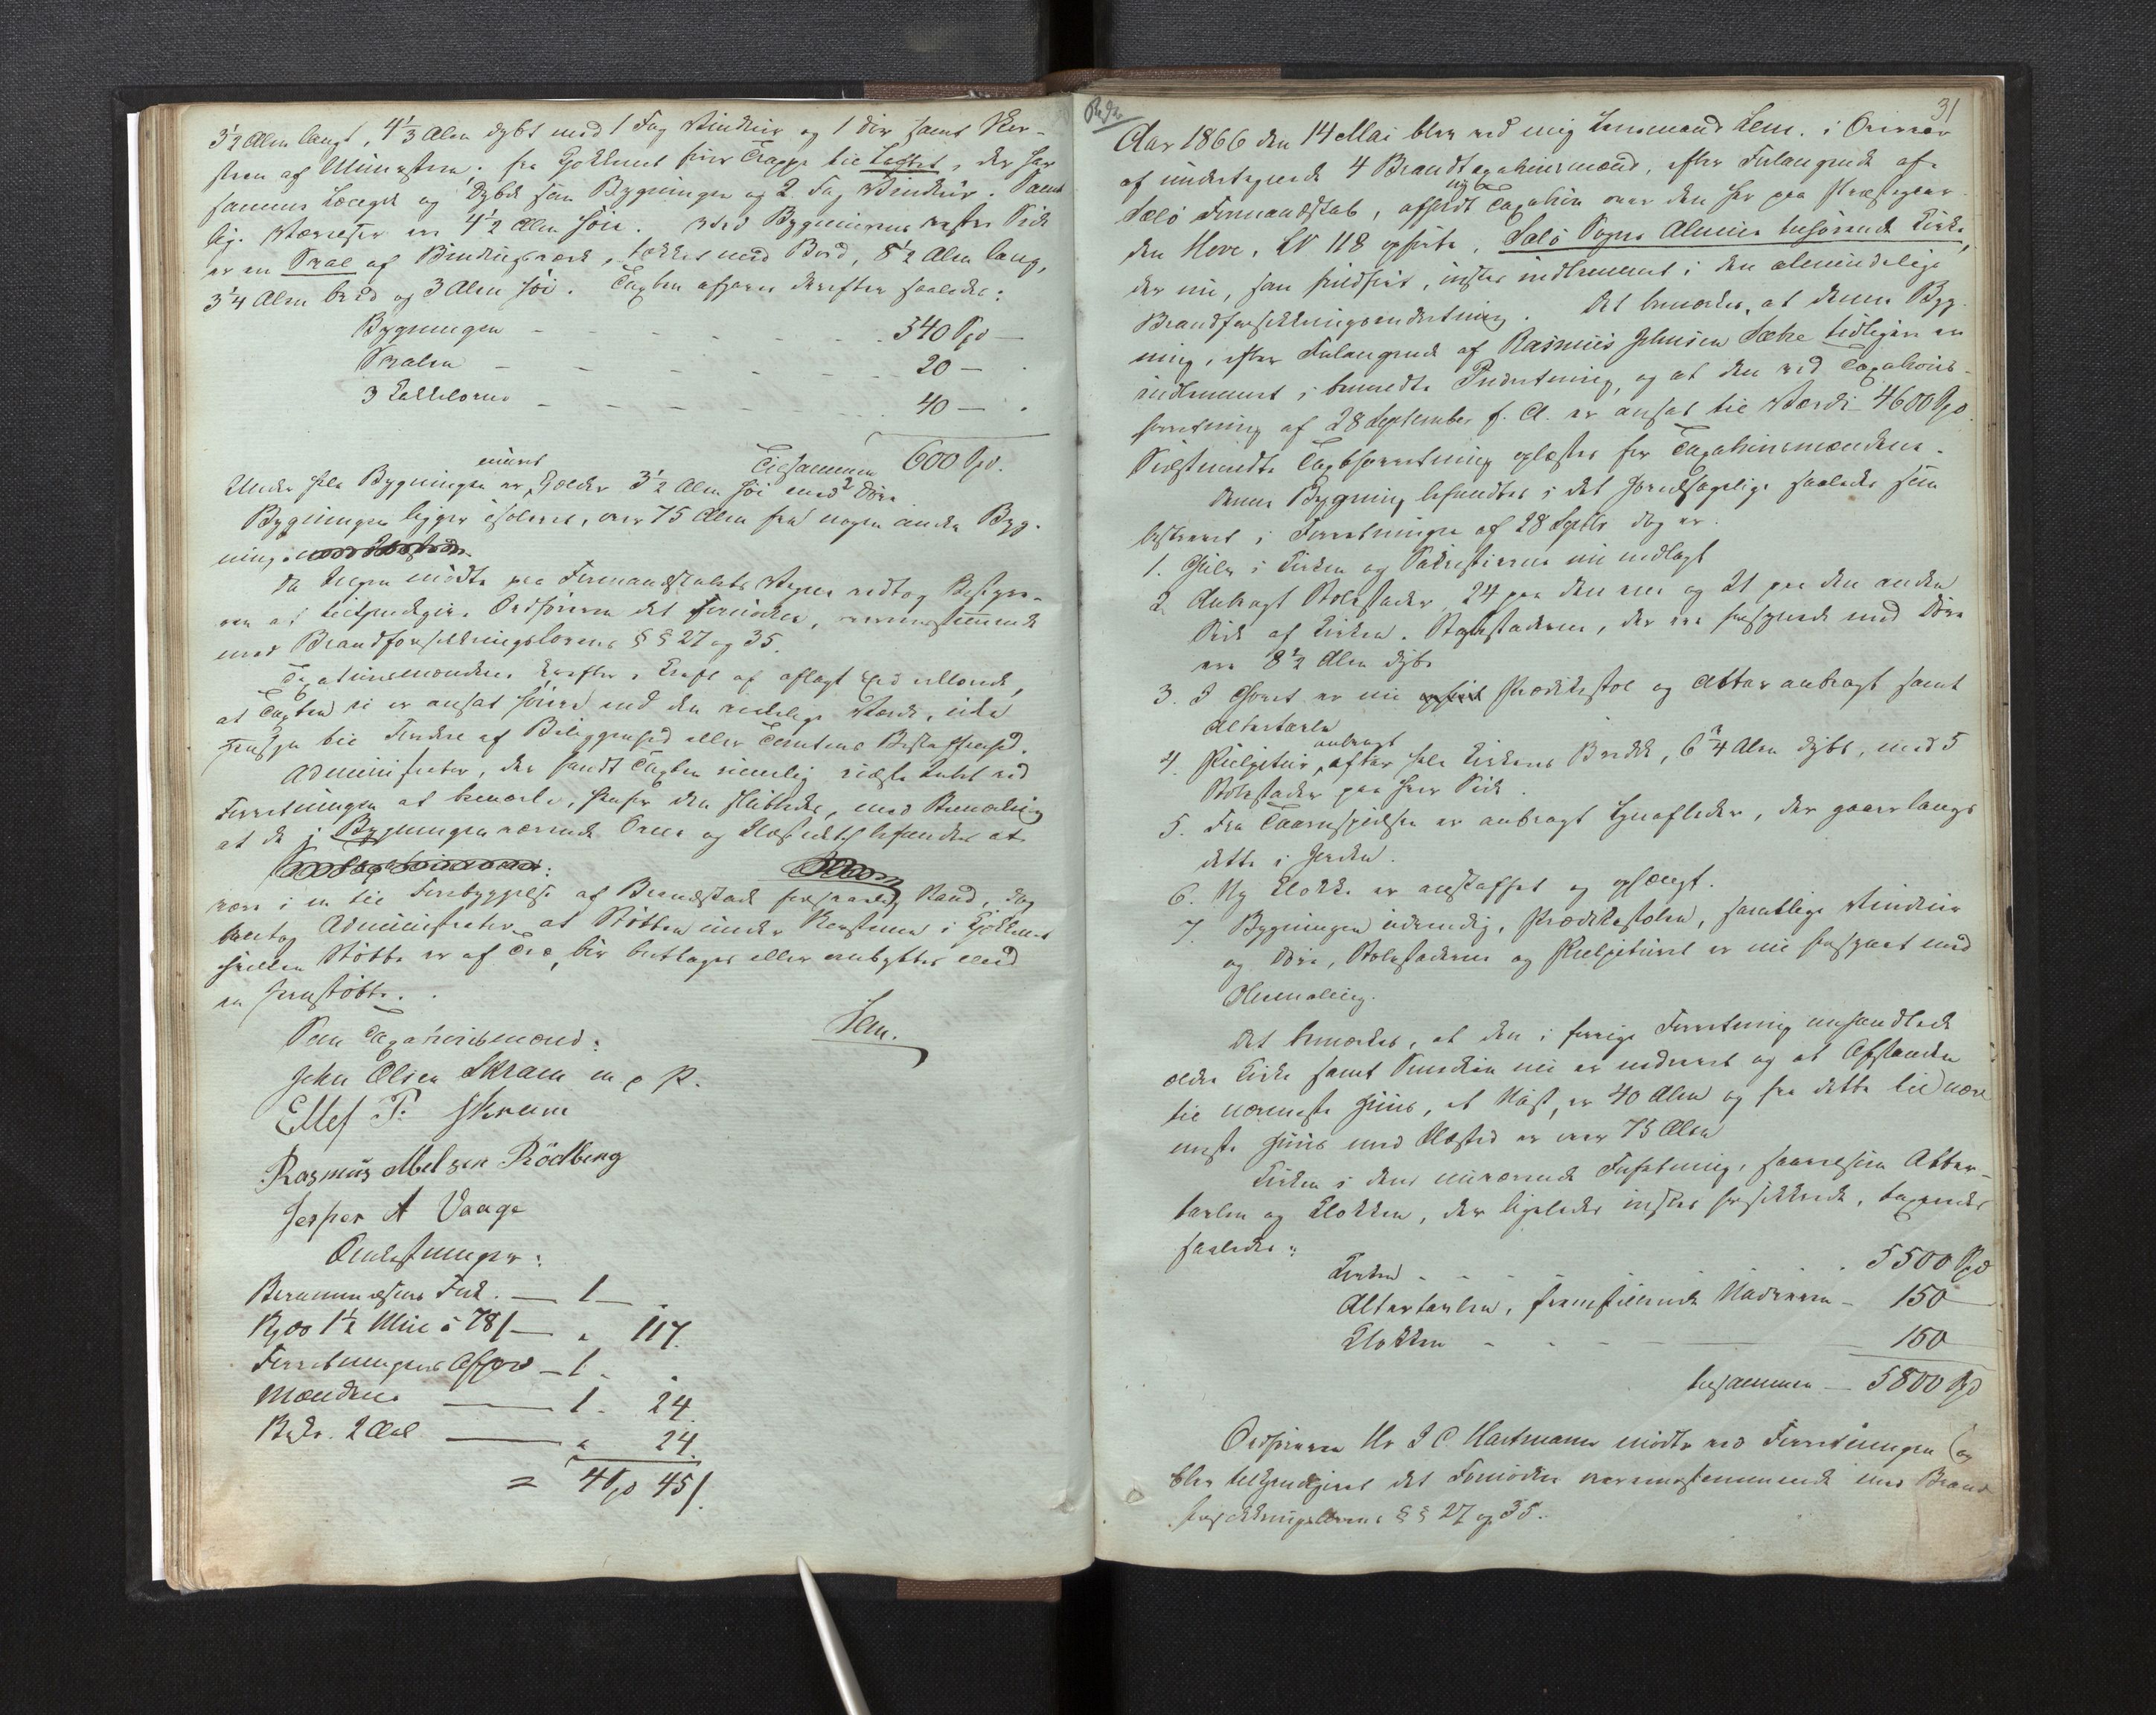 3½ Alen langt, 4⅓ Alen dybt med 1 Fag Vinduer og 1 dør, samt Skor-
steen af Muursteen; fra Kjøkkenet fører Trappe til Loftet, der har
samme Længde og Dybde som Bygningen og 2 Fag Vinduer. Samt-
lige Værelser ere 4½ Alen høie. Ved Bygningens vestre Side
er en Sval af Bindingsværk, tækket med Bord, 8½ Alen lang,
3¼ Alen bred og 3 Alen høi. Taxten afgaves derefter saaledes:
Bygningen - - - - - 540 Spd -
Svalen - - - - - 20 -
3 Kakkelovne - - - - - 40 - .
Tilsammen 600 Spd.
muret
Under hele Bygningen er Kjelder 3½ Alen høi med 2 Døre
Bygningen ligger isoleret, over 75 Alen fra nogen anden Byg-
ning.
Da Ingen mødte paa Formandskabets Vegne vedtog Bestyre-
ren at tilkjendegive Ordføreren det fornødne, overensstemmende
med Brandforsikkringslovens §§ 27 og 35.
Taxationsmændene bekræfter i Kraft af aflagt Eed
at Taxten ei er ansat høiere end den virkelige Værdi, uden
Hensyn til Stedets Beliggenhed eller Tomtens Beskaffenhed.
Administrator, der fandt Taxten rimelig
Forretningen at bemærke, hersker den sluttedes, med Bemærkning
at de i Bygningen værende Ovne og Ildsted befandtes at
være i en til Forebyggelse af Brandskade forsvarlig Stand, dog
paalagde Administrator at Støtten under Skorstenen i Kjøkkenet
hvilken Støtte er af Træ, bør borttages eller ombyttes med
en Jernstøtte.
Lem.
Som Taxationsmænd:
John Olsen Skram m p P.
Ellef T. Skram
Rasmus Abelsen Rödberg
Jesper A Vaage
Omkostninger:
Berammelsens Indk. — 1 — .
Skyds 1½ Miil á 78/ — „ 117.
Forretningens Afhjem — 1 .
Mændene — 1 . 24
Beskr. 2 Exl — „ 24.
= 4 Spd 45/.
31
Beskr
Aar 1866 den 14 Mai blev ved mig Lensmand Lem. i Overvær
af undertegnede 4 Brandtaxationsmænd, efter Forlangende af
nye
Sølø Formandskab, afholdt Taxation over den her paa Præstegaar-
den Hove, LN 118 opførte, Sølø Sogns Almue tilhørende Kirke,
der nu, som fuldført, ønskes indlemmet i den almindelige
Brandforsikkringsindretning. Det bemærkes, at denne Byg-
ning, efter Forlangende af Rasmus Johnsen Sæhe tidligere er
indlemmet i benævnte Indretning, og at den ved Taxations-
forretning af 28 September f. A. er ansat til Værdi 4600 Spd.
Sidstnævnte Taxtforretning oplæstes for Taxationsmændene.
Denne Bygning befandtes i det Hovedsagelige saaledes som
beskrevet i Forretningen af 28 Septbr dog er:
1. Gulv i Kirken og Sakristierne nu nedlagt
2. Anbragt Stolestader, 24 paa den ene og 21 paa den anden
Side af Kirken. Stolestaderne, der ere forsynede med Døre
ere 8½ Alen dybe
3. I Choret er nu Prædikestol og Alter anbragt samt
Altertavle
anbragt
4. Pulpitur, efter hele Kirkens Bredde, 6¾ Alen dybt, med 5
Stolestader paa hver Side.
5. Fra Taarnspidsen er anbragt Lynafleder, der gaaer langs
dette i Jorden.
6. Ny Klokke er anskaffet og ophængt.
7. Bygningen udvendig, Prædikestolen, samtlige Vinduer
og Døre, Stolestaderne og Pulpituret er nu forsynet med
Oliemaling.
Det bemærkes, at den i forrige Forretning omhandlede
ældre Kirke samt Smedien nu er nedrevet og at Afstanden
til nærmeste Huus, et Nøst, er 40 Alen og fra dette til nær-
meste Huus med Ildsted er over 75 Alen
Kirken i dens nuværende Forfatning, saavelsom Alter-
tavlen og Klokken, der ligeledes ønskes forsikkrede, taxeredes
saaledes:
Kirken - - - - - 5500 Spd
Altertavlen, fremstillende Nadveren - 150
Klokken - - - 150
tilsammen — 5800 Spd
Ordføreren Hr I C Hartmann mødte ved Forretningen (og
blev tilkjendegivet det Fornødne overensstemmende med Brand-
forsikkringslovens §§ 27 og 35.